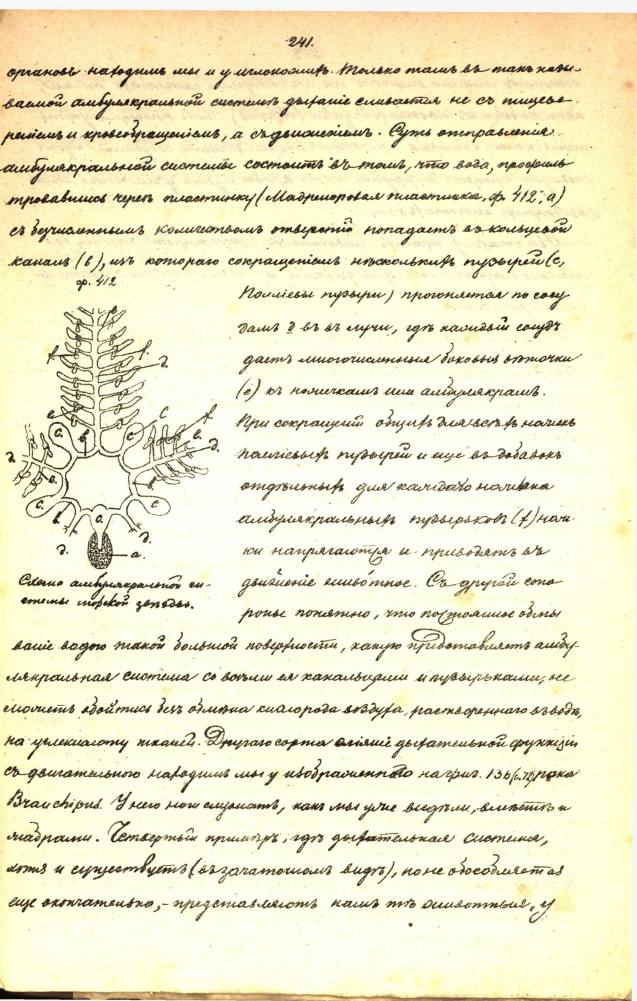 241.
органовъ находимъ мы и у иглокожихъ. Только тамъ въ такъ назы-
ваемой амбулякральной системѣ дыханіе сливается не съ пищеве-
реніемъ и кровообращеніемъ, а съ движеніемъ. Суть отправленія
амбулякральной системы состоитъ въ томъ, что вода, профиль-
тровавшись черезъ пластинку (Мадрепоровая пластинка, ф. 412, а)
съ безчисленнымъ количествомъ отверстій попадаетъ въ кольцевой
каналъ (b), изъ котораго сокращеніемъ нѣсколькихъ пузырей (c,
ф. 412
Поліевы пузыри) прогоняется по сосу-
дамъ d въ лучи, гдѣ каждый сосудъ
даетъ многочисленныя боковыя вѣточки
(e) къ ножкамъ или амбулякрамъ.
При сокращеніи общихъ для всѣхъ ножекъ
поліевыхъ пузырей и еще въ добавокъ
отдѣльныхъ для каждаго ножека
амбулякральныхъ пузырьковъ (f) нож-
ки напрягаются и приводятъ въ
движеніе животное. Съ другой сто-
роны понятно, что постоянное омы
e
f. f.
d.
e c. c f.
d. b c. e. d.
e.
c. c
b c.
d. d.
a.
Схема амбулякральной си-
стемы морской звѣзды.
ваніе водою такой большой поверхности, какую представляетъ амбу-
лякральная система со всѣми ея канальцами и пузырьками, не
можетъ обойтись безъ обмѣна кислорода воздуха, раствореннаго въ водѣ,
на углекислоту тканей. Другаго сорта сліяніе дыхательной функціи
съ двигательною находимъ мы у изображеннаго на фиг. 136 рака
Branchipus. У него ноги служатъ, какъ мы уже видѣли, вмѣстѣ и
жабрами. Четвертый примѣръ, гдѣ дыхательная система,
хотя и существуетъ (въ зачаточномъ видѣ), но не обособляется
еще окончательно, - представляютъ намъ тѣ животныя, у